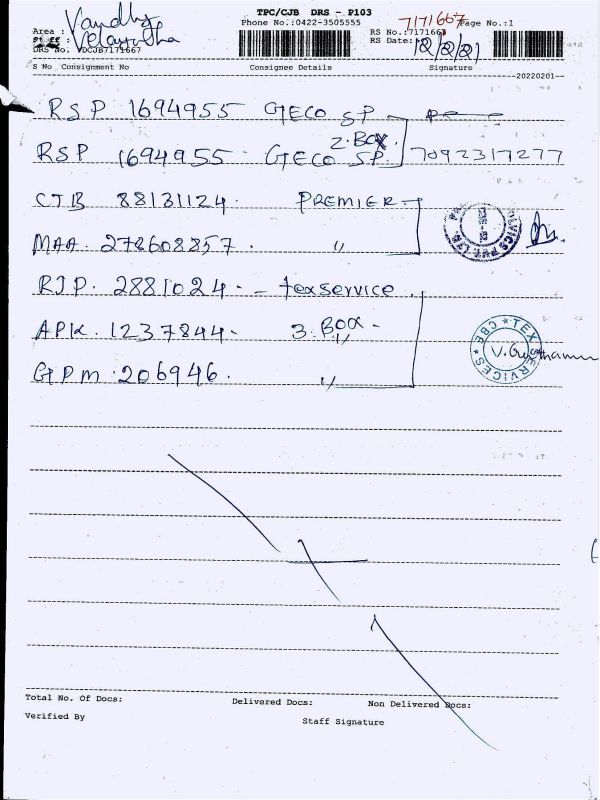 TPC/CJB DRS - P103
Phone No.:0422-3505555
7171667
Page No.:1
Area :
RS No.:7171667
Staff :
RS Date: 12/2/21
DRS No. :DCJB7171667
S No Consignment No Consignee Details Signature
--20220201--
RSP 1694955 GECO SP
2. Box
RSP 1694955 GECO SP. 7092317277
CJB 88131124. PREMIER
MAA. 278608857. "
RJP. 2881024. - texservice
APK. 1237844. 3. Box -
GPM. 206946. "
* TEX SERVICES * CBE
Total No. Of Docs: Delivered Docs: Non Delivered Docs:
Verified By
Staff Signature